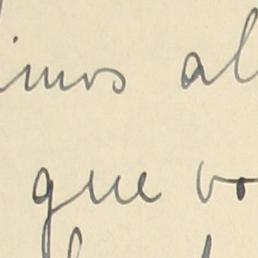 imos al
que vo